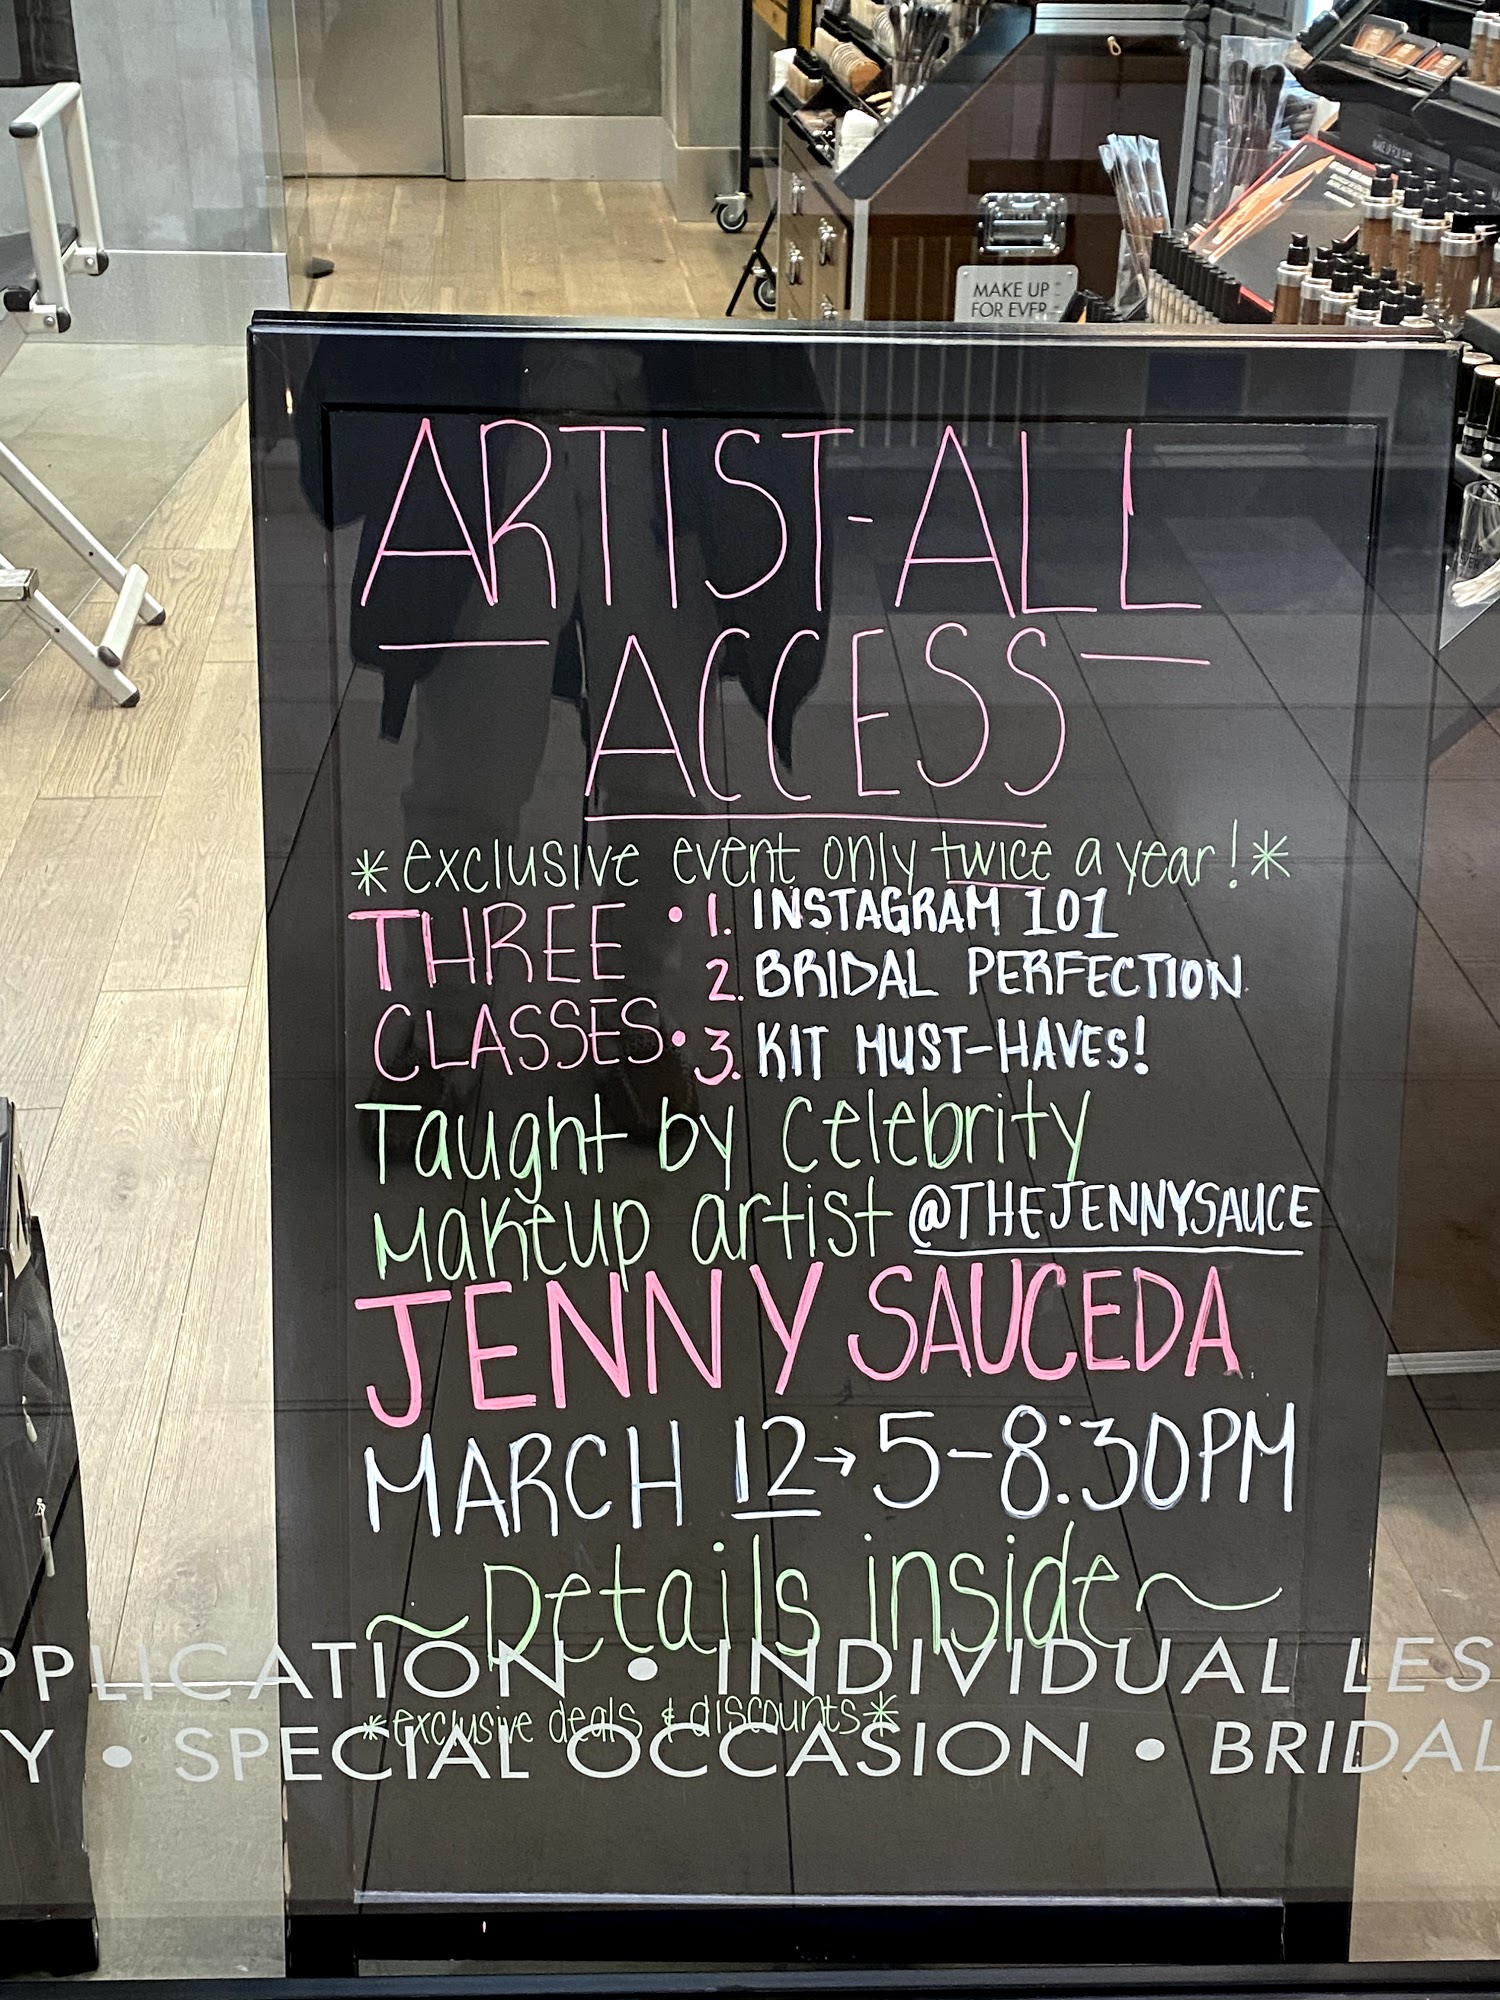 MAKE UP
FOR EVER
ARTIST-ALL
ACCESS
*exclusive event only twice a year!*
THREE
CLASSES
• 1. INSTAGRAM 101
2. BRIDAL PERFECTION
• 3. KIT MUST-HAVES!
Taught by celebrity
makeup artist @THEJENNYSAUCE
JENNY SAUCEDA
MARCH 12→5-8:30PM
~Details inside~
PPLICATION • INDIVIDUAL LES
*exclusive deals & discounts*
Y • SPECIAL OCCASION • BRIDAL